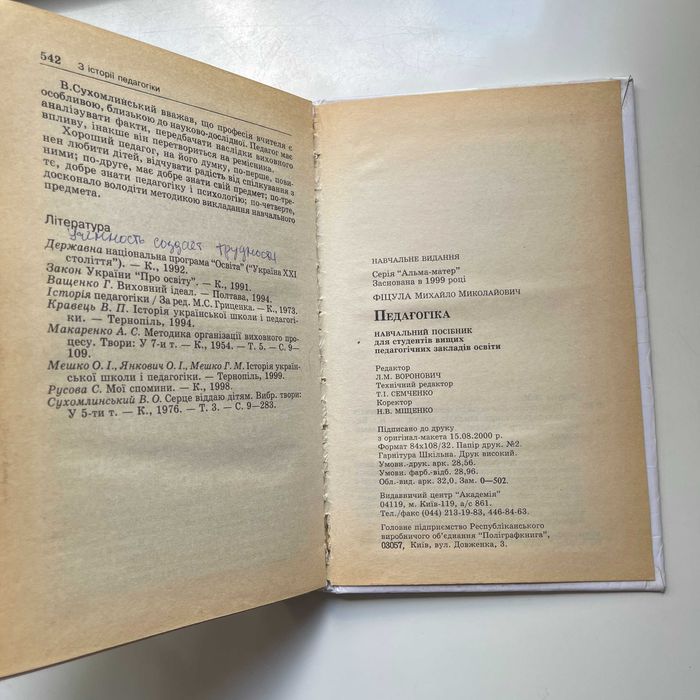 542 З історії педагогіки
В.Сухомлинський вважав, що професія вчителя є
особливою, близькою до науково-дослідної. Педагог має
аналізувати факти, передбачати наслідки виховного
впливу, інакше він перетвориться на ремісника.
Хороший педагог, на його думку, по-перше, пови-
нен любити дітей, відчувати радість від спілкування з
ними; по-друге, має добре знати свій предмет; по-тре-
тє, добре знати педагогіку і психологію; по-четверте,
досконало володіти методикою викладання навчального
предмета.
Література
создает трудности
Державна національна програма "Освіта" ("Україна XXI
століття"). — К., 1992.
Закон України "Про освіту". — К., 1991.
Ващенко Г. Виховний ідеал. — Полтава, 1994.
Історія педагогіки / За ред. М.С. Гриценка. — К., 1973.
Кравець В. П. Історія української школи і педагогі-
ки. — Тернопіль, 1994.
Макаренко А. С. Методика організації виховного про-
цесу. Твори: У 7-и т. — К., 1954. — Т. 5. — С. 9—
109.
Мешко О. І., Янкович О. І., Мешко Г. М. Історія украї-
нської школи і педагогіки. — Тернопіль, 1999.
Русова С. Мої спомини. — К., 1998.
Сухомлинський В. О. Серце віддаю дітям. Вибр. твори:
У 5-ти т. — К., 1976. — Т. 3. — С. 9—283.
НАВЧАЛЬНЕ ВИДАННЯ
Серія "Альма-матер"
Заснована в 1999 році
ФІЦУЛА Михайло Миколайович
ПЕДАГОГІКА
НАВЧАЛЬНИЙ ПОСІБНИК
для студентів вищих
педагогічних закладів освіти
Редактор
Л.М. ВОРОНОВИЧ
Технічний редактор
Т.І. СЕМЧЕНКО
Коректор
Н.В. МІЩЕНКО
Підписано до друку
з оригінал-макета 15.08.2000 р.
Формат 84х108/32. Папір друк. №2.
Гарнітура Шкільна. Друк високий.
Умовн.-друк. арк. 28,56.
Умовн. фарб.-відб. 28,96.
Обл.-вид. арк. 32,0. Зам. 0—502.
Видавничий центр "Академія"
04119, м. Київ-119, а/с 861.
Тел./факс (044) 213-19-83, 446-84-63.
Головне підприємство Республіканського
виробничого об'єднання "Поліграфкнига",
03057, Київ, вул. Довженка, 3.